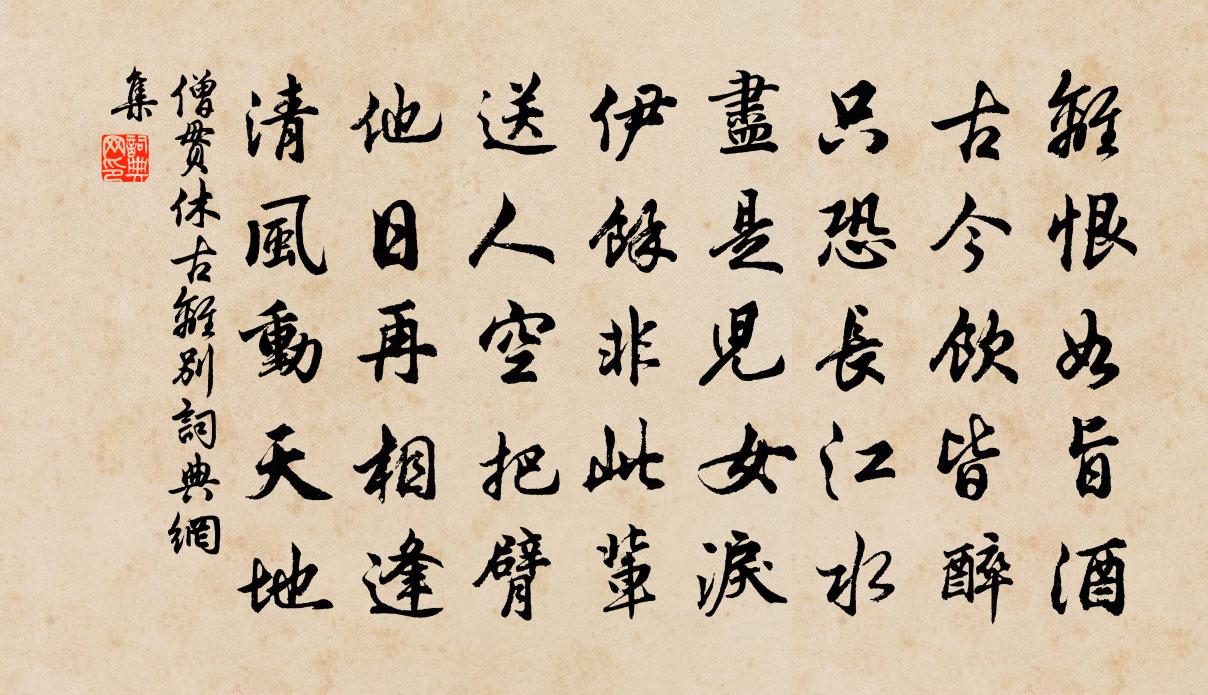 離恨如旨酒
古今飲皆醉
只恐長江水
盡是兒女淚
伊餘非此輩
送人空把臂
他日再相逢
清風動天地
僧貫休古離別詞典網
集
詞典
網印